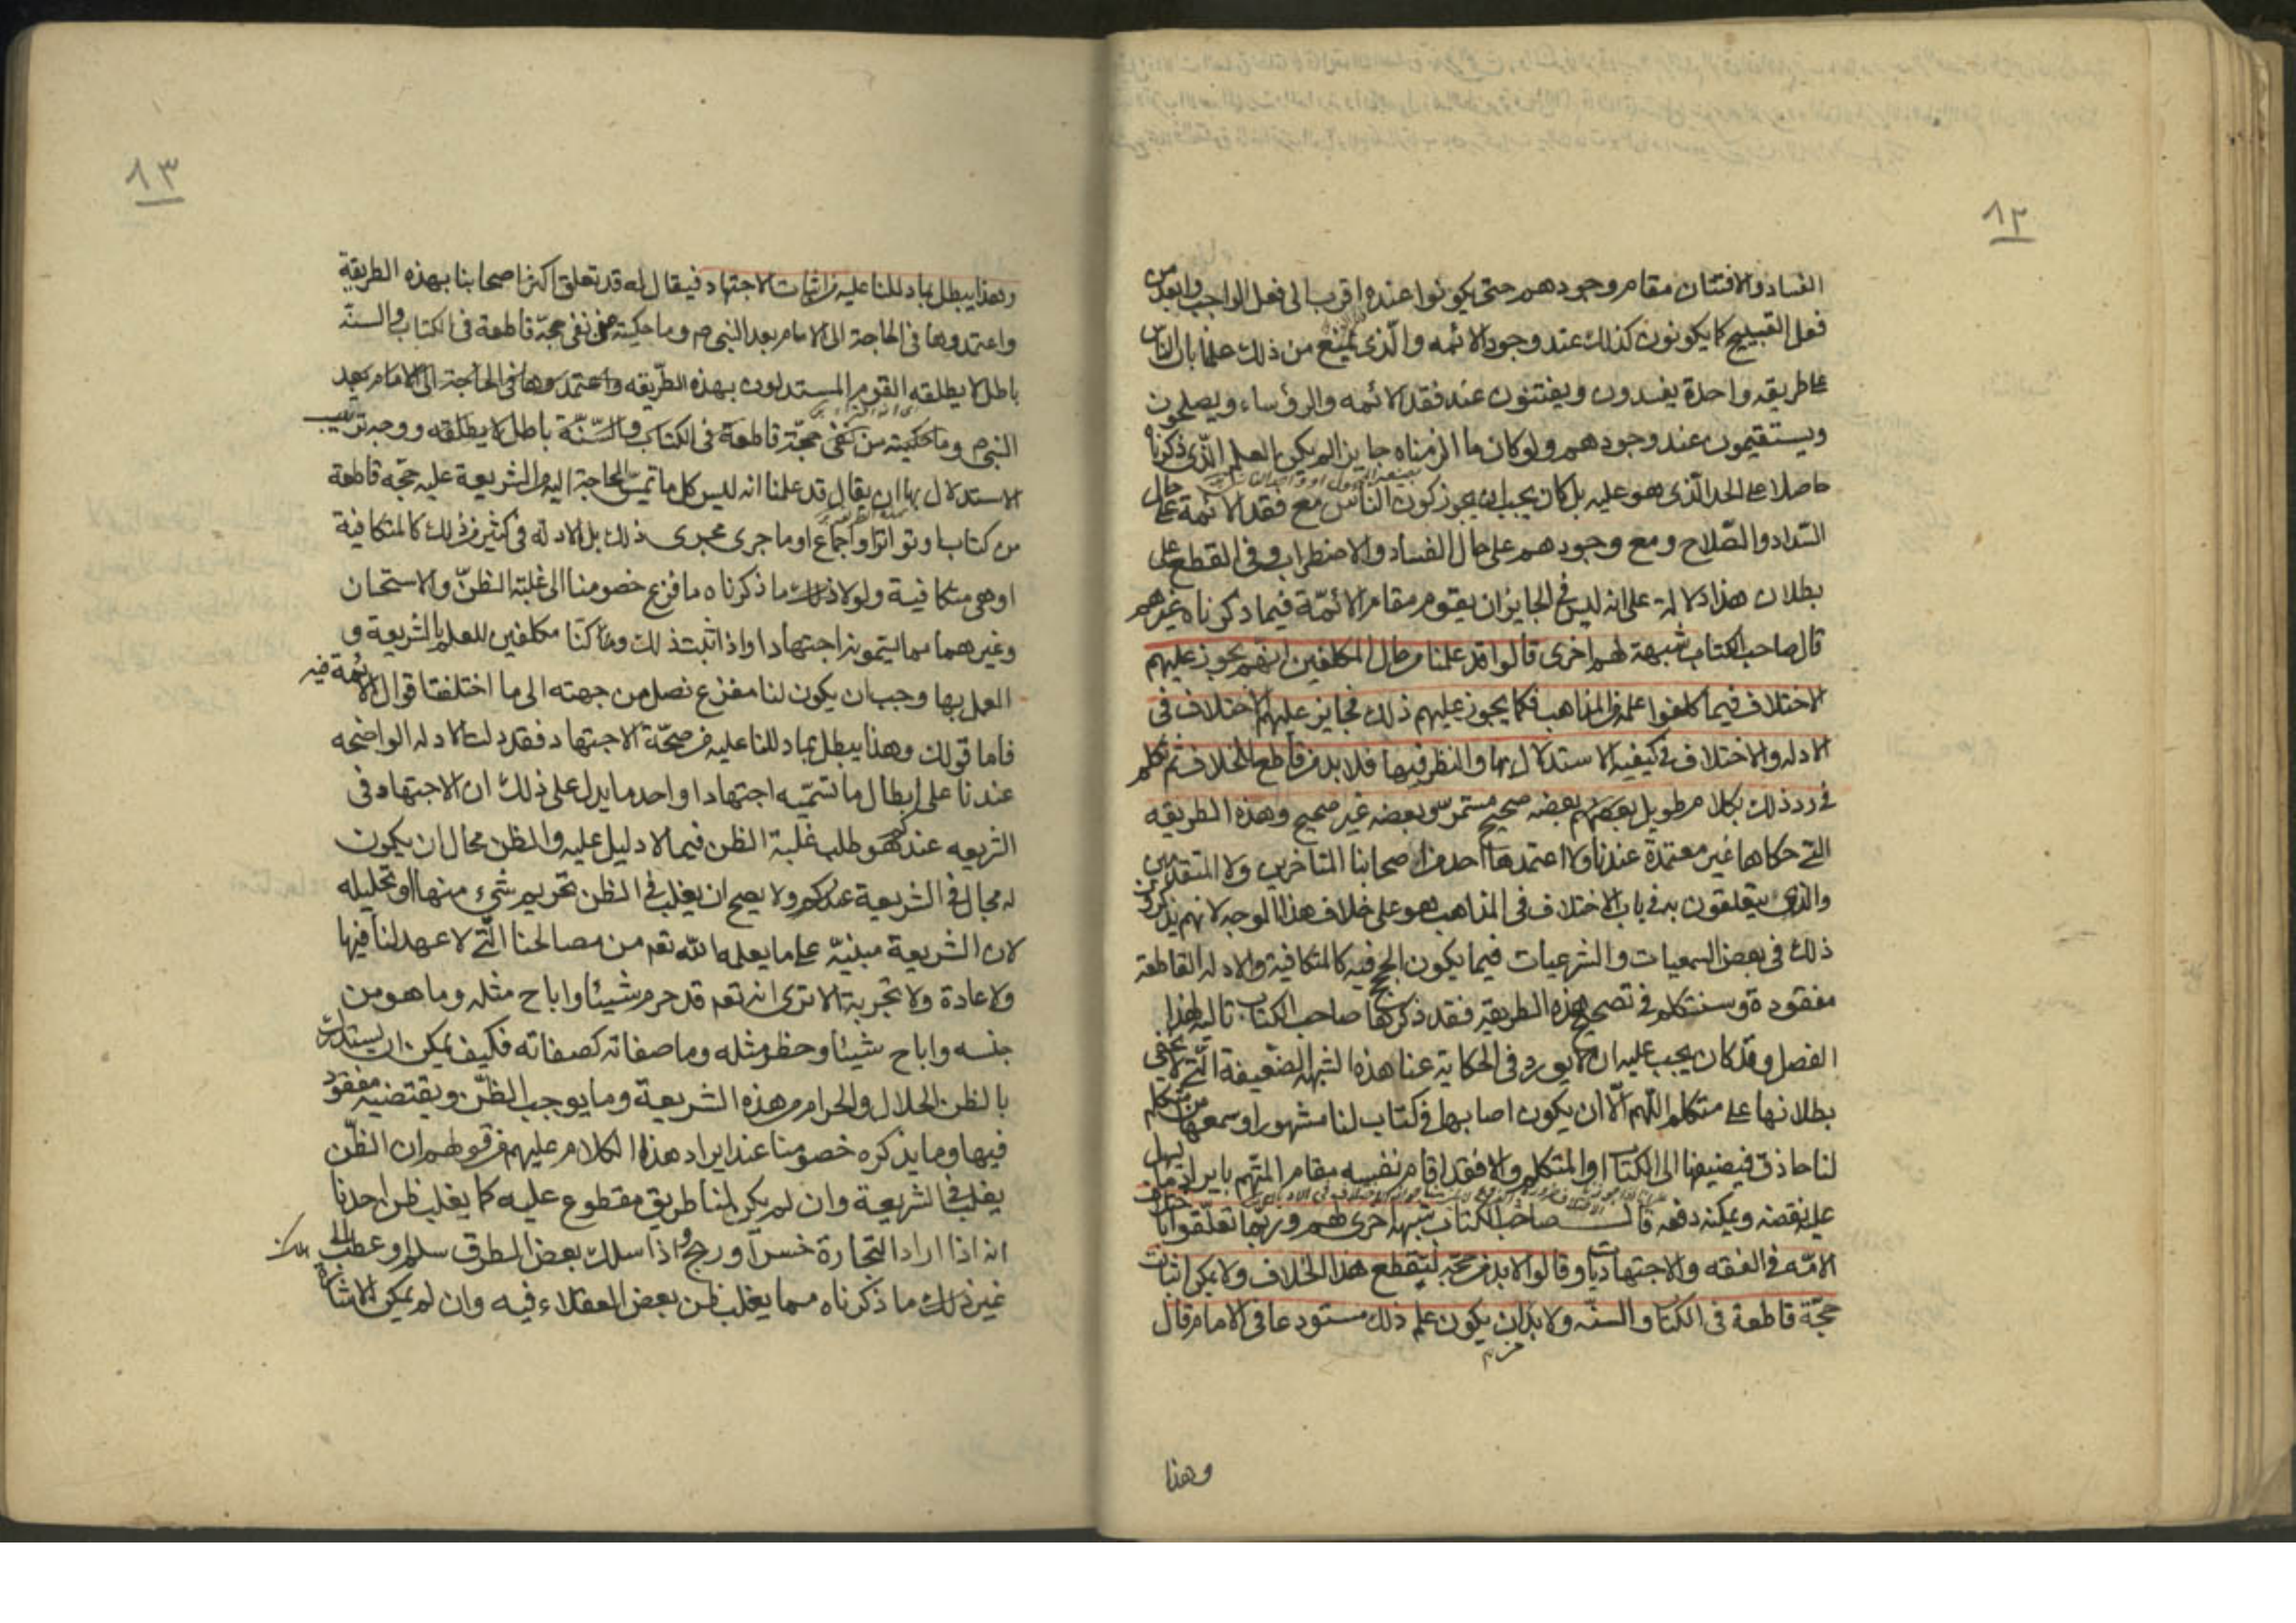 ٨٢
الفساد والافتتان مقام وجودهم حتى يكونوا عنده اقرب الى فعل الواجب وابعد من
فعل القبيح كما يكونون كذلك عند وجود الائمه والذى يمنع من ذلك علمنا بان الناس
على طريقه واحدة يفسدون ويفتنون عند فقد الائمه والرؤساء ويصلحون
ويستقيمون عند وجودهم ولو كان ما الزمناه جايزا لم يكن العلم الذى ذكرناه
حاصلا على الحد الذى هو عليه بل كان يجب ان يجوز كون الناس مع فقد الائمة على حال
السداد والصلاح ومع وجودهم على حال الفساد والاضطراب وفى القطع على
بطلان هذا دلالة على انه ليس فى الجايز ان يقوم مقام الائمّة فيما ذكرناه غيرهم
قال صاحب الكتاب شبهة لهم اخرى قالوا قد علمنا من حال المكلفين انهم يجوز عليهم
الاختلاف فيما كلفوا علمه من المذاهب فكما يجوز عليهم ذلك فجايز عليهم الاختلاف فى
الادله والاختلاف فى كيفيه الاستدلال بها والنظر فيها فلا بد من قاطع للخلاف ثم تكلم
فى رد ذلك بكلام طويل بعضه صحيح مستمر وبعضه غير صحيح وهذه الطريقه
التى حكاها غير معتمدة عندنا ولا اعتمدها احد من اصحابنا المتاخرين ولا المتقدمين
والذى يتعلقون به فى باب الاختلاف فى المذاهب هو على خلاف هذا الوجه لانهم يذكرون
ذلك فى بعض السمعيات والشرعيات فيما يكون الحجج فيه كالمتكافية والادله القاطعة
مفقودة وسنتكلم فى تصحيح هذه الطريقه فقد ذكرها صاحب الكتاب تاليه لهذا
الفصل وقد كان يجب عليه ان لا يورد فى الحكاية عنا هذه الشبهة الضعيفة التى لا يخفى
بطلانها على متكلم اللهم الا ان يكون اصابها فى كتاب لنا مشهور او سمعها من متكلم
لنا حاذق فيضيفها الى الكتاب او المتكلم والا فقد اقام نفسه مقام المتهم بايراد ما يسهل
عليه نقضه ويمكنه دفعه قال صاحب الكتاب شبهة اخرى لهم وربما تعلقوا باختلاف
الامّه فى الفقه والاجتهاديات وقالوا لا بد من حجّة لتقطع هذا الخلاف ولا يمكن اثبات
حجّة قاطعة فى الكتاب والسنّه ولا بد من ان يكون علم ذلك مستودعا فى الامام قال
وهذا
٨٣
وهذا يبطل بما دللنا عليه من اثبات الاجتهاد فيقال له قد تعلق اكثر اصحابنا بهذه الطريقة
واعتمدوها فى الحاجة الى الامام بعد النبى ص وما حكيته من نفى حجّة قاطعة فى الكتاب والسنّة
باطل لا يطلقه القوم المستدلون بهذه الطريقه واعتمدوها فى الحاجة الى الامام بعد
النبى ص وما حكيته من نفى حجّة قاطعة فى الكتاب والسّنّة باطل لا يطلقه ووجه ترتيب
الاستدلال بها ان يقال قد علمنا انه ليس كل ما تمسّ الحاجة اليه من الشريعة عليه حجّه قاطعة
من كتاب او تواتر او اجماع او ما جرى مجرى ذلك بل الادلة فى كثير من ذلك كالمتكافية
او هى متكافية ولولا ذلك ما ذكرناه ما فزع خصومنا الى غلبة الظنّ والاستحسان
وغيرهما مما يسمونه اجتهادا واذا ثبت ذلك وكنّا مكلفين للعلم بالشريعة و
العمل بها وجب ان يكون لنا مفزع نصل من جهته الى ما اختلفت اقوال الائمّة فيه
فاما قولك وهذا يبطل بما دللنا عليه من صحّة الاجتهاد فقد دلت الادله الواضحه
عندنا على ابطال ما تسمّيه اجتهادا واحد ما يدل على ذلك ان الاجتهاد فى
الشريعه عندكم هو طلب غلبة الظن فيما لا دليل عليه والظن محال ان يكون
له مجال فى الشريعة عندكم ولا يصح ان يغلب فى الظن تحريم شىء منها او تحليله
لان الشريعة مبنيّة على ما يعلمه الله تعم من مصالحنا التّى لا عهد لنا فيها
ولا عادة ولا تجربة الا ترى انه تعم قد حرم شيئا واباح مثله وما هو من
جنسه واباح شيئا وحظر مثله وما صفاته كصفاته فكيف يمكن ان يستدل
بالظن الحلال والحرام من هذه الشريعة وما يوجب الظّن ويقتضيه مفقود
فيها وما يذكره خصومنا عند ايراد هذا الكلام عليهم من قولهم ان الظّن
يغلب فى الشريعة وان لم يكن لنا طريق مقطوع عليه كما يغلب ظن احدنا
انه اذا اراد التجارة خسر او ربح واذا سلك بعض الطرق سلم او عطب الى
غير ذلك ما ذكرناه مما يغلب ظن بعض العقلاء فيه وان لم يمكن الاشارة